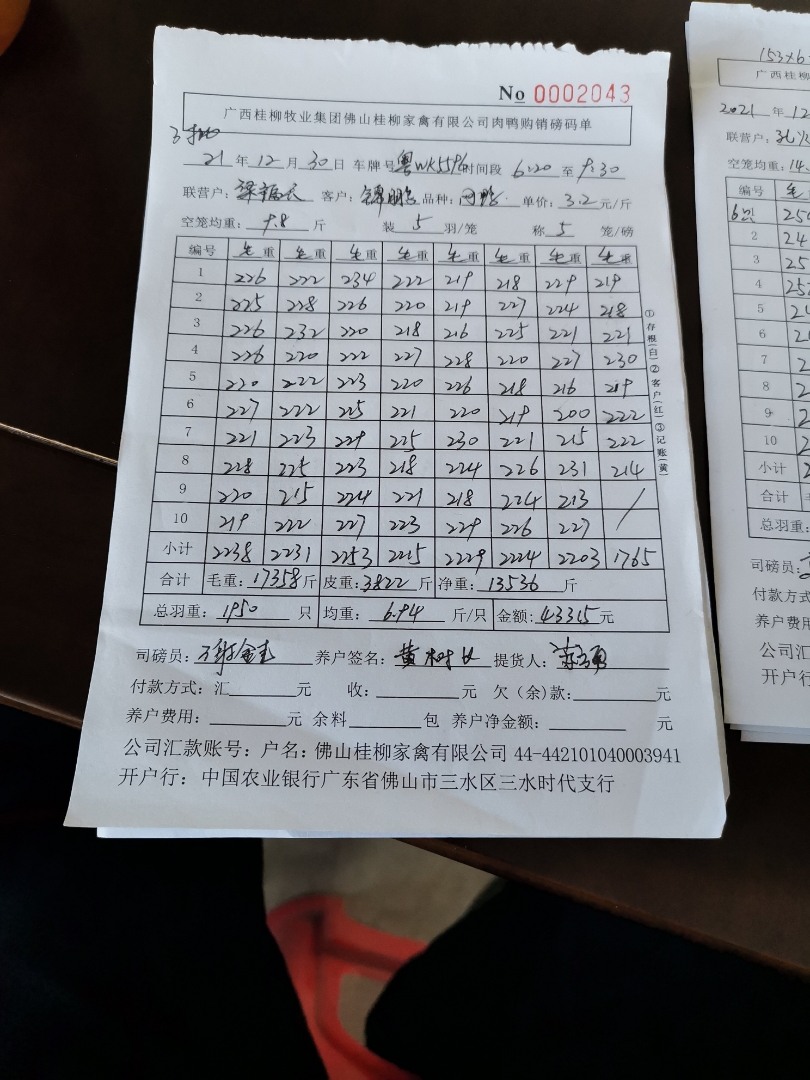 No 0002043
广西桂柳牧业集团佛山桂柳家禽有限公司肉鸭购销磅码单
21 年 12 月 30 日 车牌号 粤WK5596 时间段 6:20 至 9:30
联营户: 客户: 锦鹏 品种: 单价: 3.2 元/斤
空笼均重: 9.8 斤 装 5 羽/笼 称 5 笼/磅
编号 毛重 毛重 毛重 毛重 毛重 毛重 毛重 毛重
1 226 222 234 222 219 218 229 219
2 225 228 226 220 219 227 224 218
3 226 232 220 218 216 225 221 221
4 226 220 222 227 228 220 227 230
5 220 222 223 220 226 218 216 219
6 227 222 225 221 220 219 200 222
7 221 223 229 225 230 221 215 222
8 228 225 223 218 224 226 231 214
9 220 215 224 221 218 224 213 /
10 219 222 227 223 229 226 227 /
小计 2238 2231 2253 2215 2229 2224 2203 1765
合计 毛重: 17358 斤 皮重: 3822 斤 净重: 13536 斤
总羽重: 1950 只 均重: 6.94 斤/只 金额: 43315 元
司磅员: 养户签名: 黄树 提货人:
付款方式: 汇 元 收: 元 欠(余)款: 元
养户费用: 元 余料 包 养户净金额: 元
公司汇款账号: 户名: 佛山桂柳家禽有限公司 44-442101040003941
开户行: 中国农业银行广东省佛山市三水区三水时代支行
①存根(白)②客户(红)③记账(黄)
153×6
广西桂柳
2021 年 12
联营户:
空笼均重: 14.
编号
2 24
3 25
4 25
5 2
6 2
7 2
8 2
9 2
10 2
小计
合计
总羽重:
司磅员:
付款方式
养户费用
公司汇
开户行